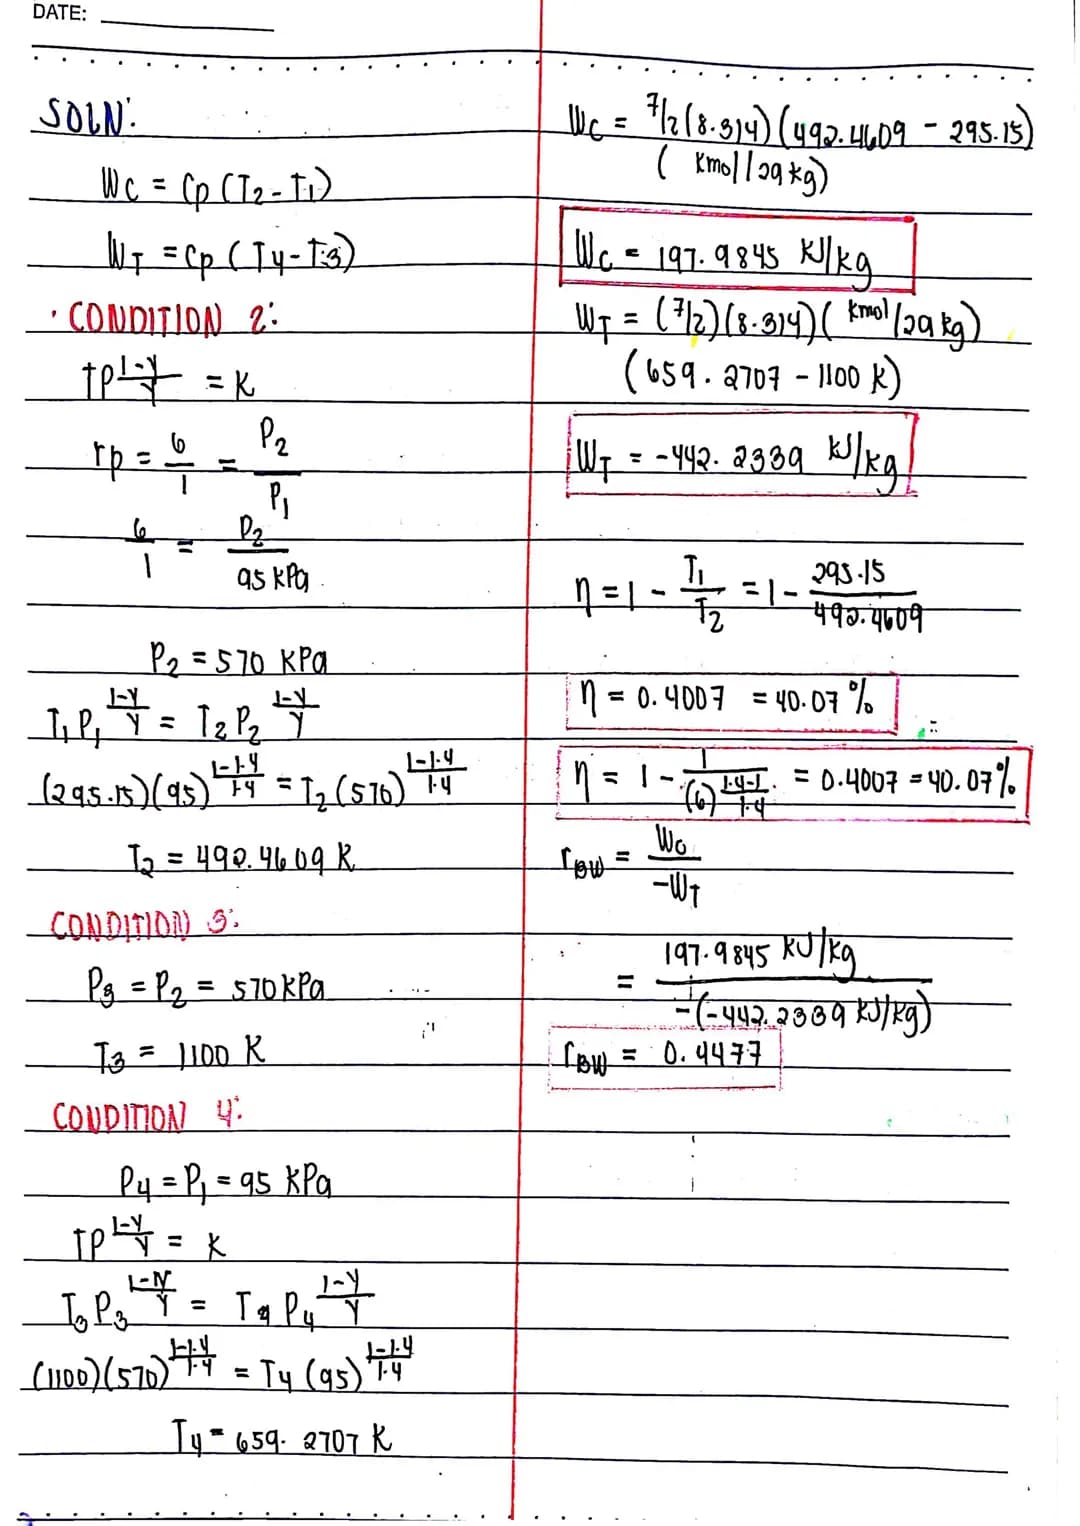 DATE:
SOLN:
Wc = Cp (T2 - T1)
WT = Cp (T4 - T3)
• CONDITION 2:
TP^(1-γ/γ) = K
rp = 6/1 = P2/P1
6/1 = P2/95 kPa
P2 = 570 KPa
T1 P1^(1-γ/γ) = T2 P2^(1-γ/γ)
(295.15)(95)^(1-1.4/1.4) = T2 (570)^(1-1.4/1.4)
T2 = 492.4609 K
CONDITION 3:
P3 = P2 = 570 kPa
T3 = 1100 K
CONDITION 4:
P4 = P1 = 95 kPa
TP^(1-γ/γ) = K
T3 P3^(1-γ/γ) = T4 P4^(1-γ/γ)
(1100)(570)^(1-1.4/1.4) = T4 (95)^(1-1.4/1.4)
T4 = 659.2707 K
Wc = 7/2 (8.314) (492.4609 - 295.15)
( Kmol/29 kg)
Wc = 197.9845 KJ/kg
WT = (7/2)(8.314)( Kmol/29 kg)
(659.2707 - 1100 K)
WT = -442.2339 KJ/kg
η = 1 - T1/T2 = 1 - 295.15/492.4609
η = 0.4007 = 40.07 %
η = 1 - 1/(6)^(1.4-1/1.4) = 0.4007 = 40.07%
rBW = Wc/-WT
= 197.9845 KJ/kg / -(-442.2339 KJ/kg)
rBW = 0.4477